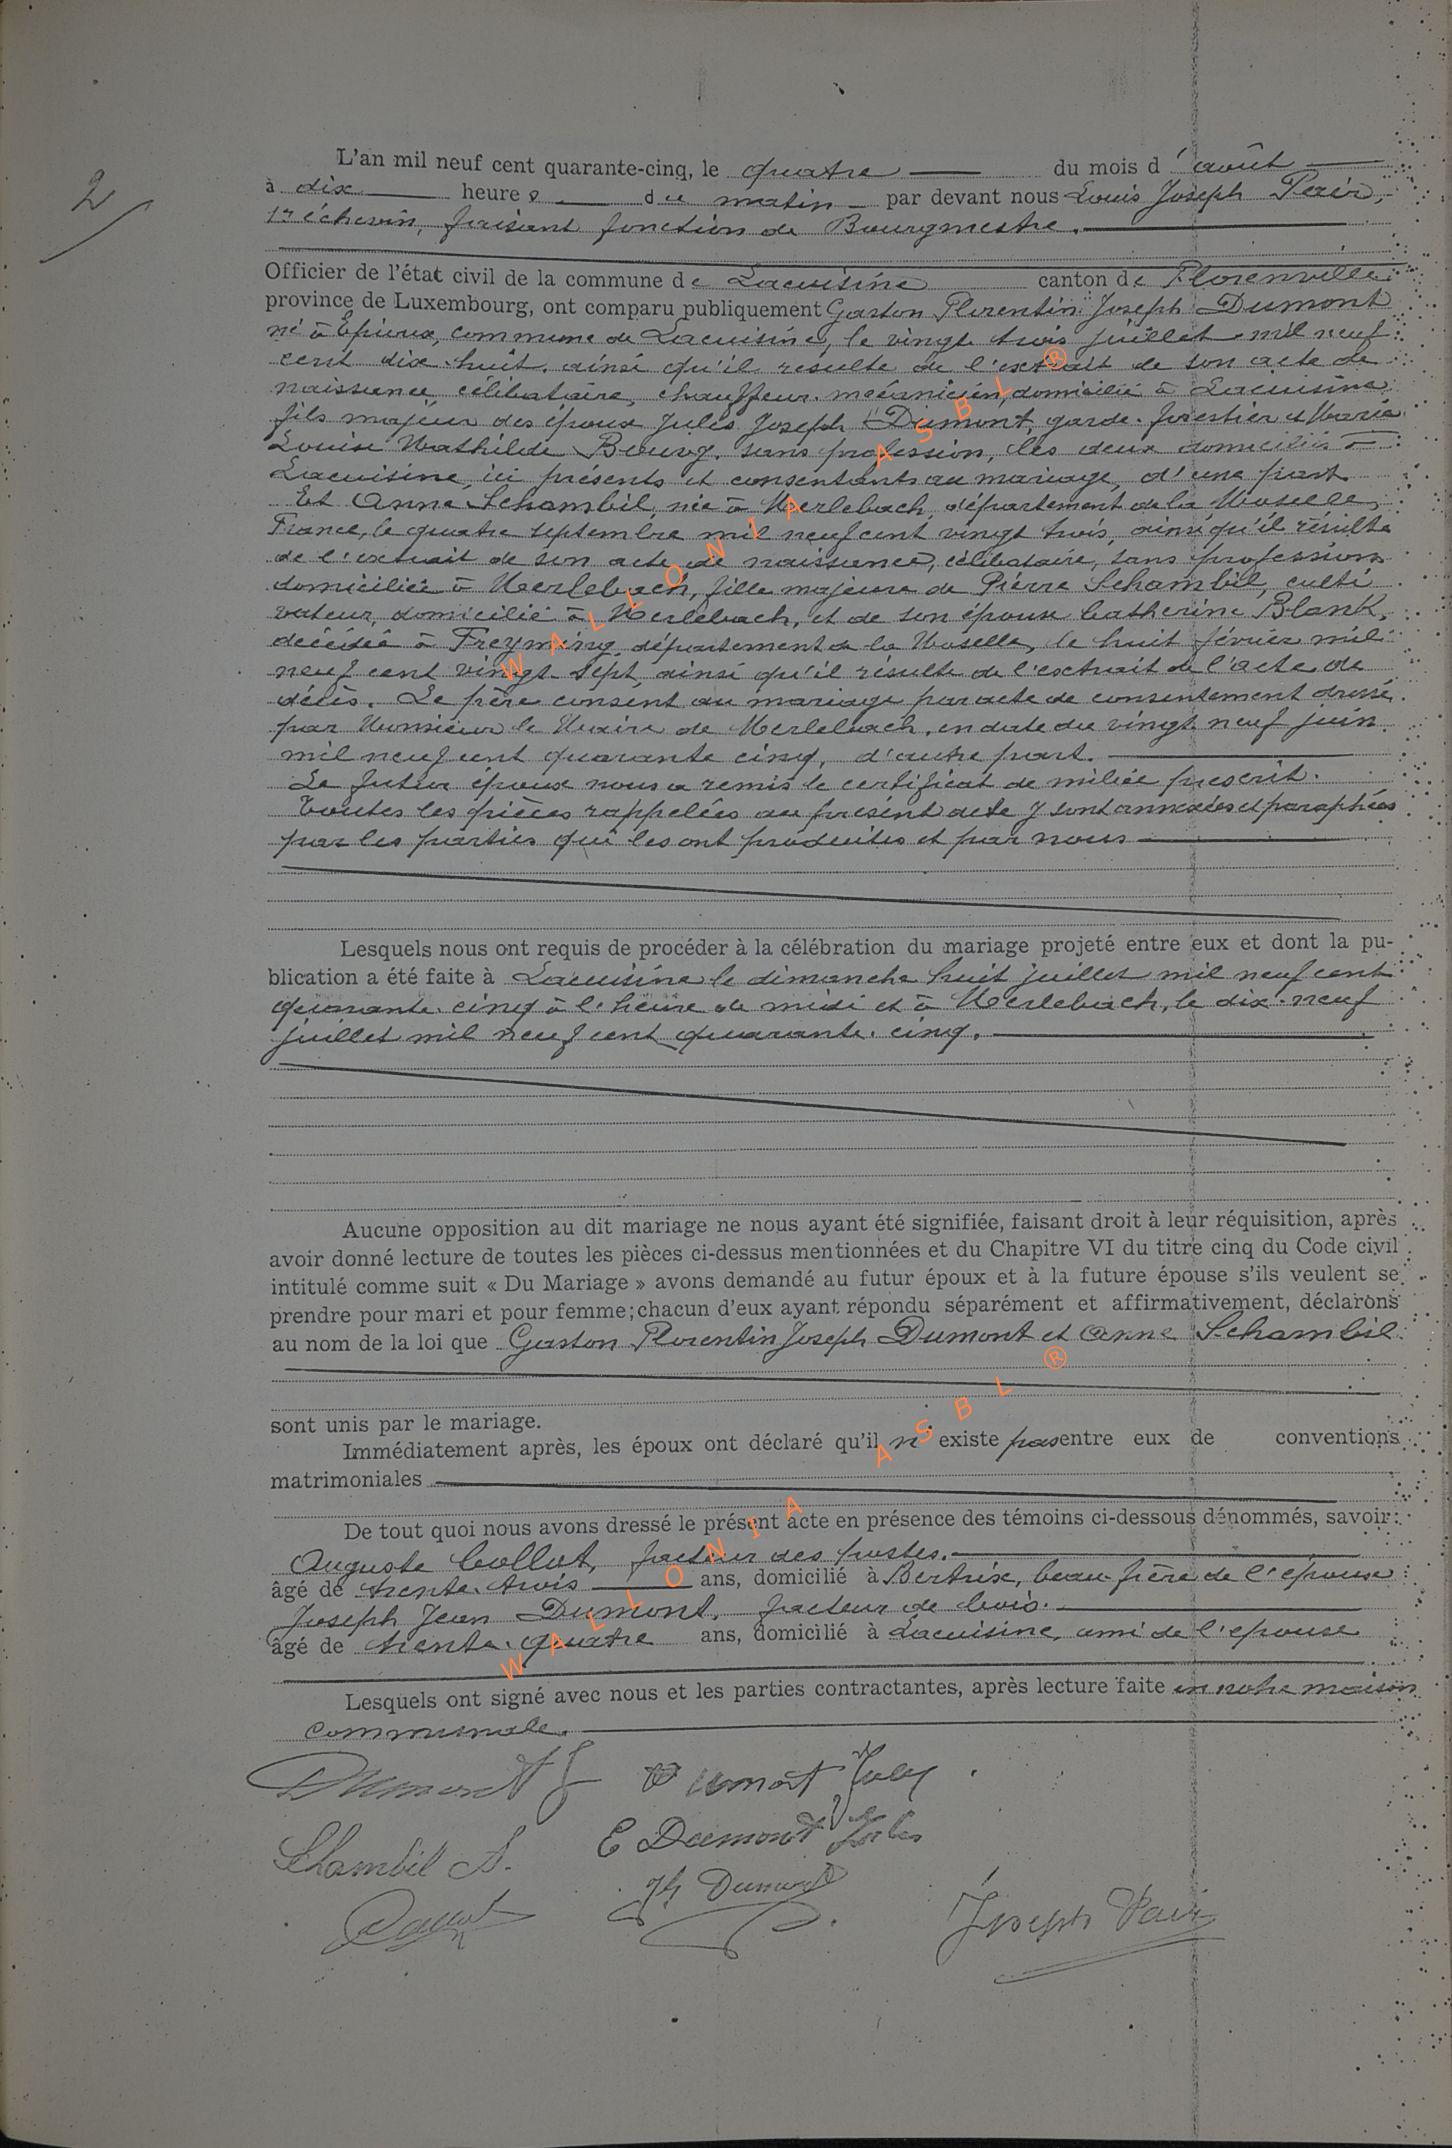 2/
L'an mil neuf cent quarante-cinq, le quatre du mois d'août
à dix heures du matin par devant nous Louis Joseph Pair,
1er échevin, faisant fonction de Bourgmestre.
Officier de l'état civil de la commune de Lacuisine canton de Florenville
province de Luxembourg, ont comparu publiquement Gaston Florentin Joseph Dumont
né à Epioux, commune de Lacuisine, le vingt trois juillet mil neuf
cent dix-huit, ainsi qu'il résulte de l'extrait de son acte de
naissance, célibataire, chauffeur-mécanicien, domicilié à Lacuisine
fils majeur des époux Jules Joseph Dumont, garde-forestier et Maria
Louise Mathilde Bourg, sans profession, les deux domiciliés à
Lacuisine, ici présents et consentants au mariage, d'une part
Et Anne Schambil, née à Merlebach, département de la Moselle,
France, le quatre septembre mil neuf cent vingt trois, ainsi qu'il résulte
de l'extrait de son acte de naissance, célibataire, sans profession
domiciliée à Merlebach, fille majeure de Pierre Schambil, culti
vateur, domicilié à Merlebach, et de son épouse Catherine Blank,
décédée à Freyming, département de la Moselle, le huit février mil
neuf cent vingt-sept, ainsi qu'il résulte de l'extrait de l'acte de
décès. Le père consent au mariage par acte de consentement dressé
par Monsieur le Maire de Merlebach, en date du vingt neuf juin
mil neuf cent quarante cinq, d'autre part.
Le futur époux nous a remis le certificat de milice prescrit.
Toutes les pièces rappelées au présent acte y sont annexées et paraphées
par les parties qui les ont produites et par nous
Lesquels nous ont requis de procéder à la célébration du mariage projeté entre eux et dont la pu-
blication a été faite à Lacuisine le dimanche huit juillet mil neuf cent
quarante-cinq à l'heure de midi et à Merlebach, le dix-neuf
juillet mil neuf cent quarante-cinq.
Aucune opposition au dit mariage ne nous ayant été signifiée, faisant droit à leur réquisition, après
avoir donné lecture de toutes les pièces ci-dessus mentionnées et du Chapitre VI du titre cinq du Code civil
intitulé comme suit « Du Mariage » avons demandé au futur époux et à la future épouse s'ils veulent se
prendre pour mari et pour femme; chacun d'eux ayant répondu séparément et affirmativement, déclarons
au nom de la loi que Gaston Florentin Joseph Dumont et Anne Schambil
sont unis par le mariage.
Immédiatement après, les époux ont déclaré qu'il n'existe pas entre eux de conventions
matrimoniales
De tout quoi nous avons dressé le présent acte en présence des témoins ci-dessous dénommés, savoir:
Auguste Collot, facteur des postes.
âgé de trente-trois ans, domicilié à Bertrix, beau-frère de l'épouse
Joseph Jean Dumont, facteur de bois.
âgé de trente-quatre ans, domicilié à Lacuisine, ami de l'épouse
Lesquels ont signé avec nous et les parties contractantes, après lecture faite en notre maison
communale.
Dumont G Dumont Jules
Schambil A. E Dumont
Jh Dumont Joseph Pair
WALLONIA ASBL ®
WALLONIA ASBL ®